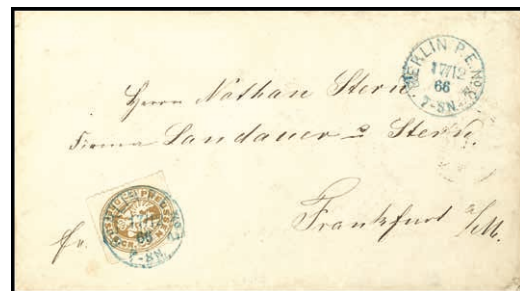 BERLIN P.E. No 2
17 12
66
7-8N.
Herrn Nathan Stern
Firma Landauer & Stern
Frankfurt a/M.
fr.
PREUSSEN
66
7-8N.